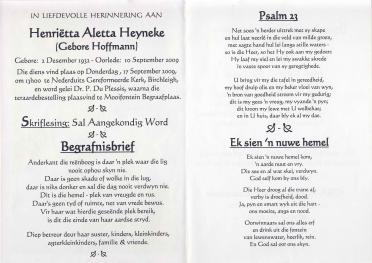 IN LIEFDEVOLLE HERINNERING AAN
Henriëtta Aletta Heyneke
(Gebore Hoffmann)
Gebore: 2 Desember 1932 - Oorlede: 10 September 2009
Die diens vind plaas op Donderdag, 17 September 2009,
om 13h00 te Nederduits Gereformeerde Kerk, Birchleigh,
en word gelei Dr. P. Du Plessis, waarna die
teraardebestelling plaasvind te Mooifontein Begraafplaas.
Skriflesing: Sal Aangekondig Word
Begrafnisbrief
Anderkant die reënboog is daar 'n plek waar die lig
nooit ophou skyn nie.
Daar is geen skade of wolke in die lug,
daar is niks donker en sal die dag nooit verdwyn nie.
Dit is die hemel - plek van vreugde en rus.
Daar's geen tyd of ruimte, net van vrede bewus.
Vir haar wat hierdie geseënde plek bereik,
is dit die einde van haar aardse stryd.
Diep betreur deur haar suster, kinders, kleinkinders,
agterkleinkinders, familie & vriende.
Psalm 23
Net soos 'n herder uittrek met sy skape
en hul laat neerlê in die veld van milde groen,
met sagte hand hul lei langs stille waters -
so is die Heer, so het Hy ook aan my gedoen:
Hy laaf my siel en lei my swakke skrede
in vaste spoor van sy geregtighede.
U bring vir my die tafel in gereedheid,
my hoof druip olie en my beker vloei van wyn,
'n bron van goedheid stroom uit vir my, gudsing;
dit is my gees 'n vreug, my vyande 'n pyn;
dit kroon my lewe met U weldade,
en in U huis, daar bly ek al my dae.
Ek sien 'n nuwe hemel
Ek sien 'n nuwe hemel kom,
'n aarde nuut en vry.
Die see en al wat skei, verdwyn.
God self kom by ons bly.
Die Heer droog al die trane af,
verby is droefheid, dood.
Ja, pyn en smart wyk uit die hart -
ons moeite, angs en nood.
Oorwinnaars sal ons alles erf
en drink uit die fontein
van lewenswater, heerlik, rein.
En God sal ons ons skyn.